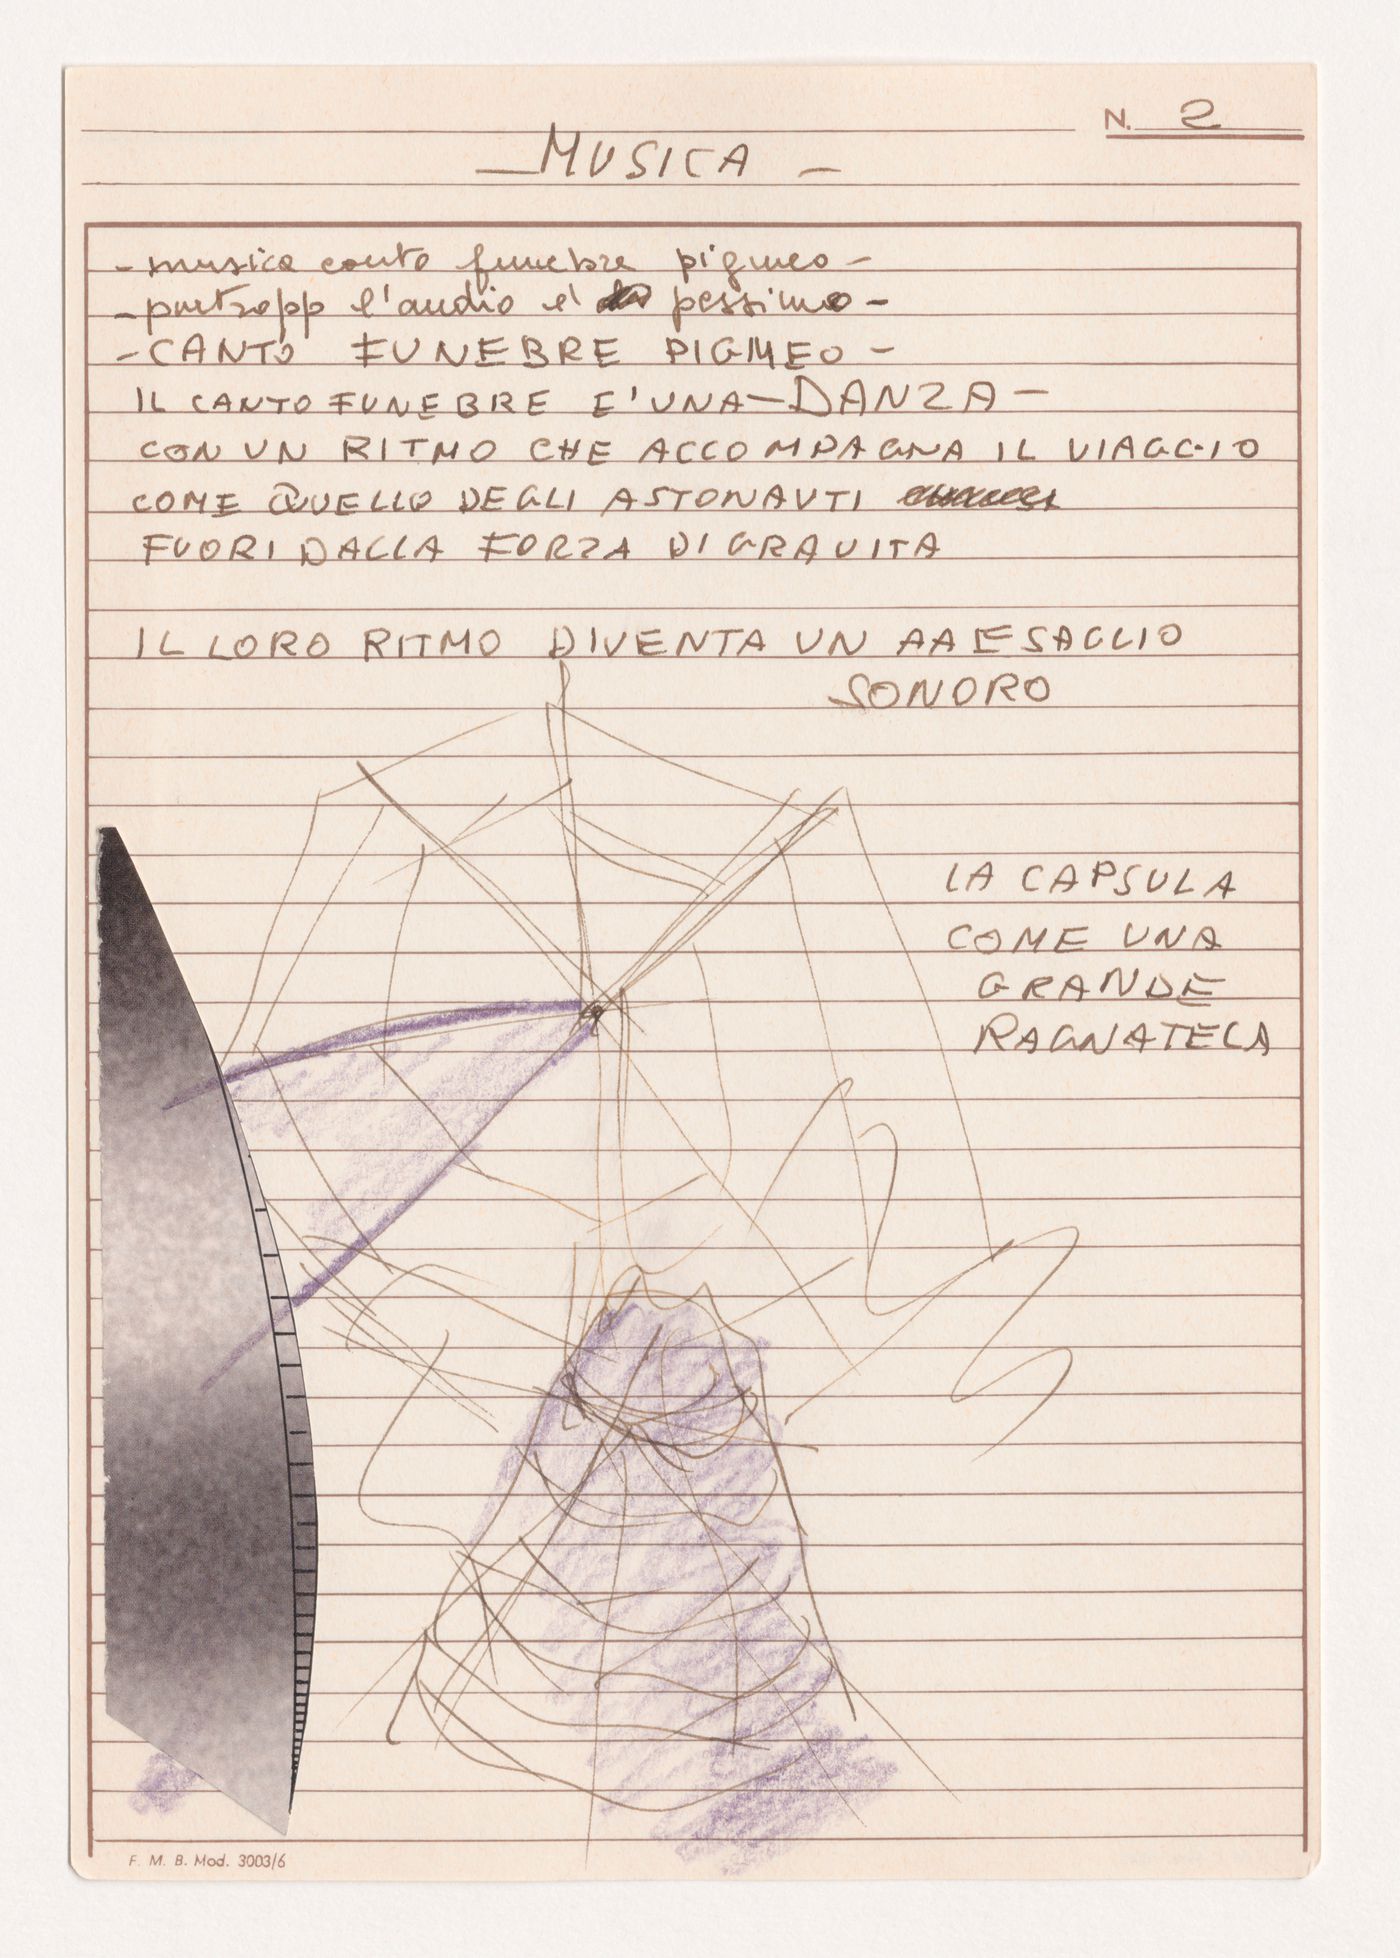 N. 2
— MUSICA —
- musica canto funebre pigmeo -
- purtropp l'audio e' pessimo -
- CANTO FUNEBRE PIGMEO -
IL CANTO FUNEBRE E' UNA — DANZA —
CON UN RITMO CHE ACCOMPAGNA IL VIAGGIO
COME QUELLO DEGLI ASTONAUTI
FUORI DALLA FORZA DI GRAVITA
IL LORO RITMO DIVENTA UN
SONORO
LA CAPSULA
COME UNA
GRANDE
RAGNATELA
F. M. B. Mod. 3003/6